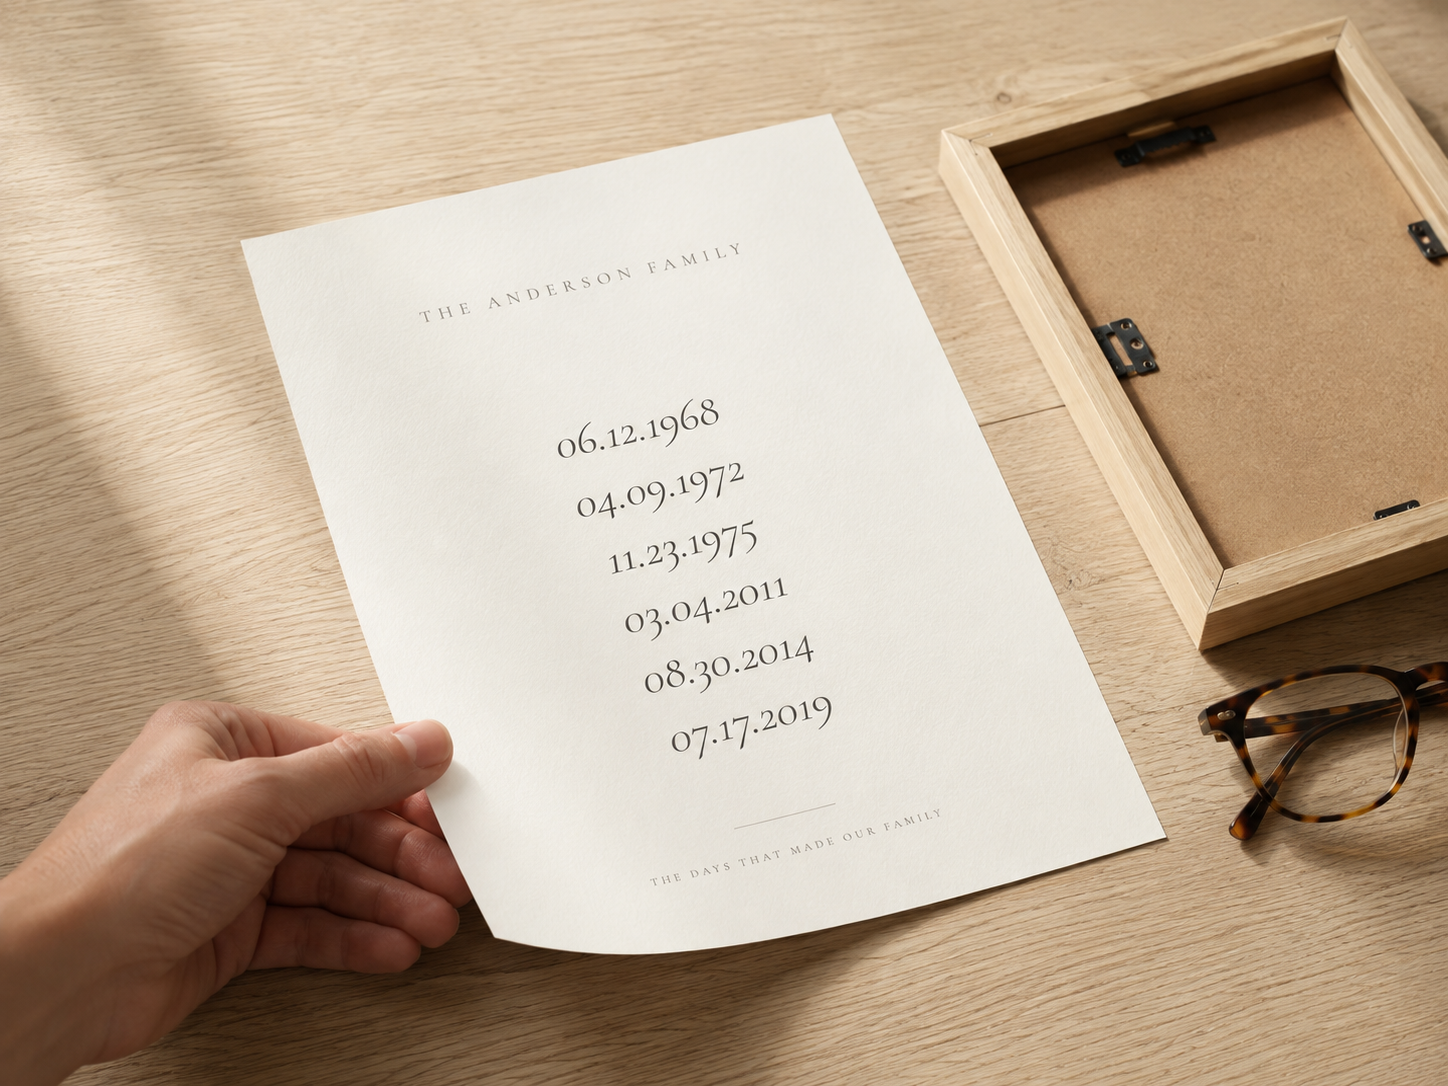 THE ANDERSON FAMILY
06.12.1968
04.09.1972
11.23.1975
03.04.2011
08.30.2014
07.17.2019
THE DAYS THAT MADE OUR FAMILY